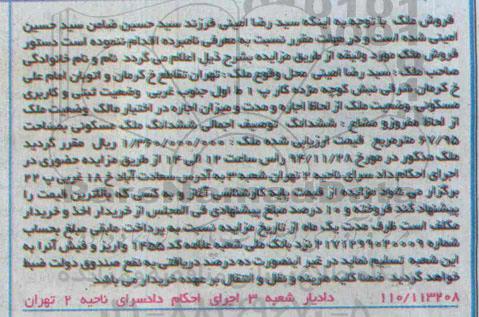 فروش ملک با توجه به اینکه سید رضا امینی فرزند سید حسین ضامن سید حسین
امینی شده است و در مهلت مقرر نسبت به معرفی نامبرده اقدام ننموده است دستور
فروش ملک مورد وثیقه از طریق مزایده بشرح ذیل اعلام می گردد نام و نام خانوادگی
صاحب ملک : سید رضا امینی محل وقوع ملک : تهران تقاطع خ کرمان و اتوبان امام علی
خ کرمان شرقی نبش کوچه مژده پ ۱ ط اول جنوب غربی وضعیت ثبتی و کاربری
مسکونی وضعیت ملک از لحاظ اجاره و مدت و میزان اجاره در اختیار مالک وضعیت ملک
از لحاظ مفروز و مشاع : ششدانگ توصیف اجمالی ششدانگ ملک مسکونی بمساحت
۶۷/۹۵ مترمربع قیمت ارزیابی شده ملک : ۱/۳۶۰/۰۰۰/۰۰۰ ریال مقرر گردید
ملک مذکور در مورخ ۹۴/۱۱/۲۸ راس ساعت ۱۲ الی ۱۴ از طریق مزایده حضوری در
اجرای احکام داد سرای ناحیه ۲ تهران شعبه ۳ به آدرس سعادت آباد خ ۱۸ غربی پ ۲۲
برگزار می شود مزایده از قیمت پایه کارشناسی آغاز و به کسی که بالاترین قیمت را
پیشنهاد کند فروخته و ۱۰ درصد مبلغ پیشنهادی فی المجلس از خریدار اخذ و خریدار
مکلف است ظرف مدت یک ماه از تاریخ مزایده نسبت به پرداخت مابقی مبلغ بحساب
شماره ۲۱۷۱۲۹۹۰۲۰۰۰۹ نزد بانک ملی شعبه علامه کد ۱۴۵۵ واریز و فیش آنرا به
این شعبه تسلیم نماید در غیر اینصورت ده درصد دریافتی به نفع صندوق دولت ضبط
خواهد گردید ضمنا کلیه هزینه و نقل و انتقال بر عهده خریدار می باشد
۱۱۰/۱۱۳۲۰۸ دادیار شعبه ۳ اجرای احکام دادسرای ناحیه ۲ تهران